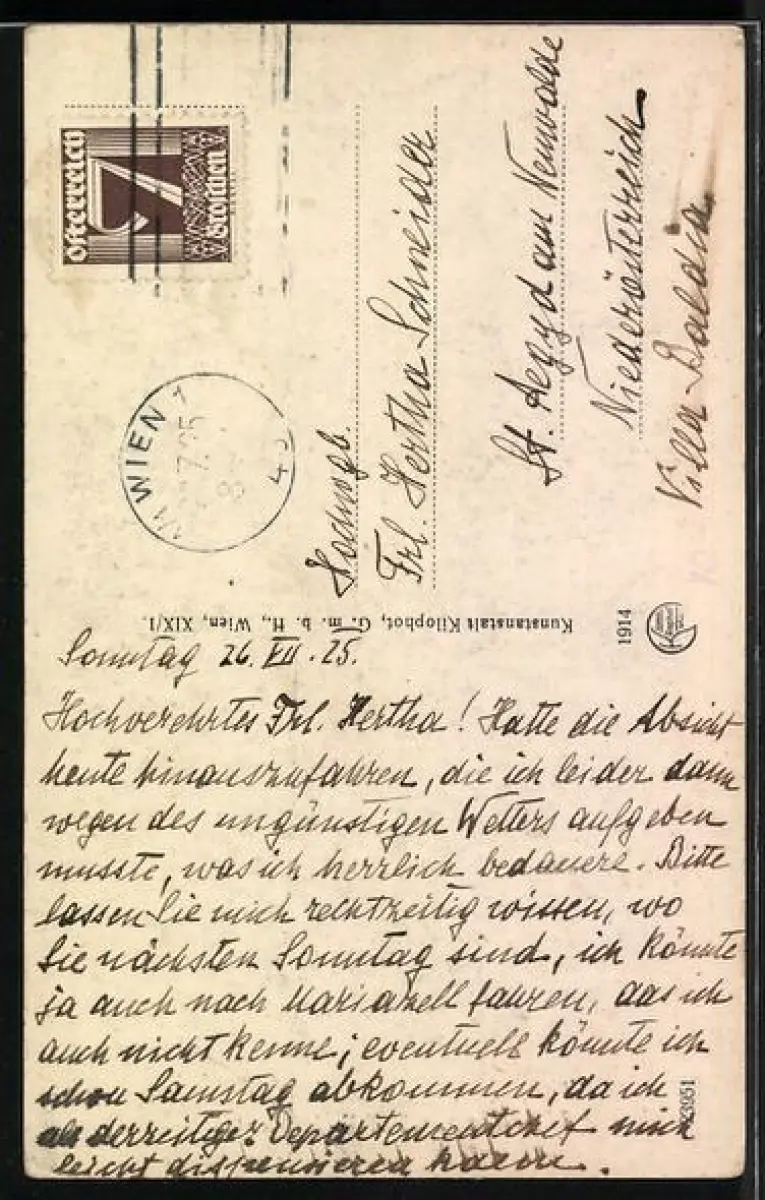 Österreich
7
Groschen
WIEN
Hochwgb.
Frl. Hertha Schneider
St. Aegyd am Neuwalde
Niederösterreich
Villa Daldia
Kunstanstalt Kilophot, G. m. b. H., Wien, XIX/1.
1914
Sonntag 26. VII. 25.
Hochverehrtes Frl. Hertha! Hatte die Absicht
heute hinauszufahren, die ich leider dann
wegen des ungünstigen Wetters aufgeben
musste, was ich herzlich bedauere. Bitte
lassen Sie mich rechtzeitig wissen, wo
Sie nächsten Sonntag sind, ich könnte
ja auch nach Mariazell fahren, das ich
auch nicht kenne; eventuell könnte ich
schon Samstag abkommen, da ich
als derzeitiger Departementchef mich
leicht dispensieren kann.
3951